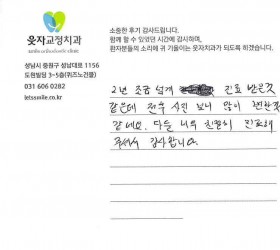 웃자교정치과
smile orthodontic clinic
성남시 중원구 성남대로 1156
도원빌딩 3~5층(퀴즈노건물)
031 606 0282
letssmile.co.kr
소중한 후기 감사드립니다.
함께 할 수 있었던 시간에 감사하며,
환자분들의 소리에 귀 기울이는 웃자치과가 되도록 하겠습니다.
2년 조금 넘게 진료 받은것
같은데 전후 사진 보니 많이 변한것
같네요. 다들 너무 친절히 진료해
주셔서 감사합니다.